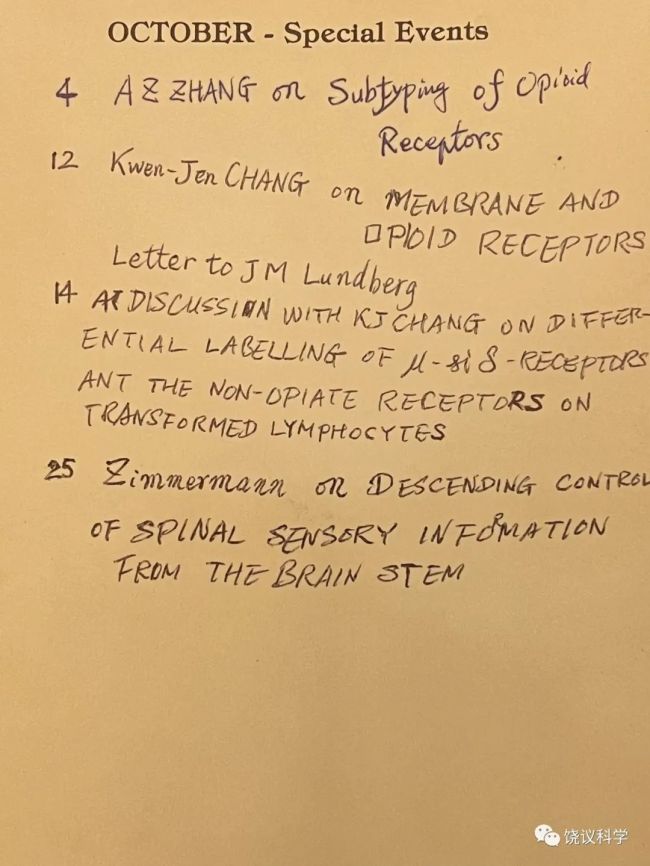 OCTOBER - Special Events
4 AZ ZHANG on Subtyping of Opioid
Receptors
12 Kwen-Jen CHANG on MEMBRANE AND
OPIOID RECEPTORS
Letter to JM Lundberg
14 DISCUSSION WITH KJ CHANG ON DIFFER-
ENTIAL LABELLING OF μ- δ-RECEPTORS
ANT THE NON-OPIATE RECEPTORS ON
TRANSFORMED LYMPHOCYTES
25 Zimmermann on DESCENDING CONTROL
OF SPINAL SENSORY INFORMATION
FROM THE BRAIN STEM
饶议科学